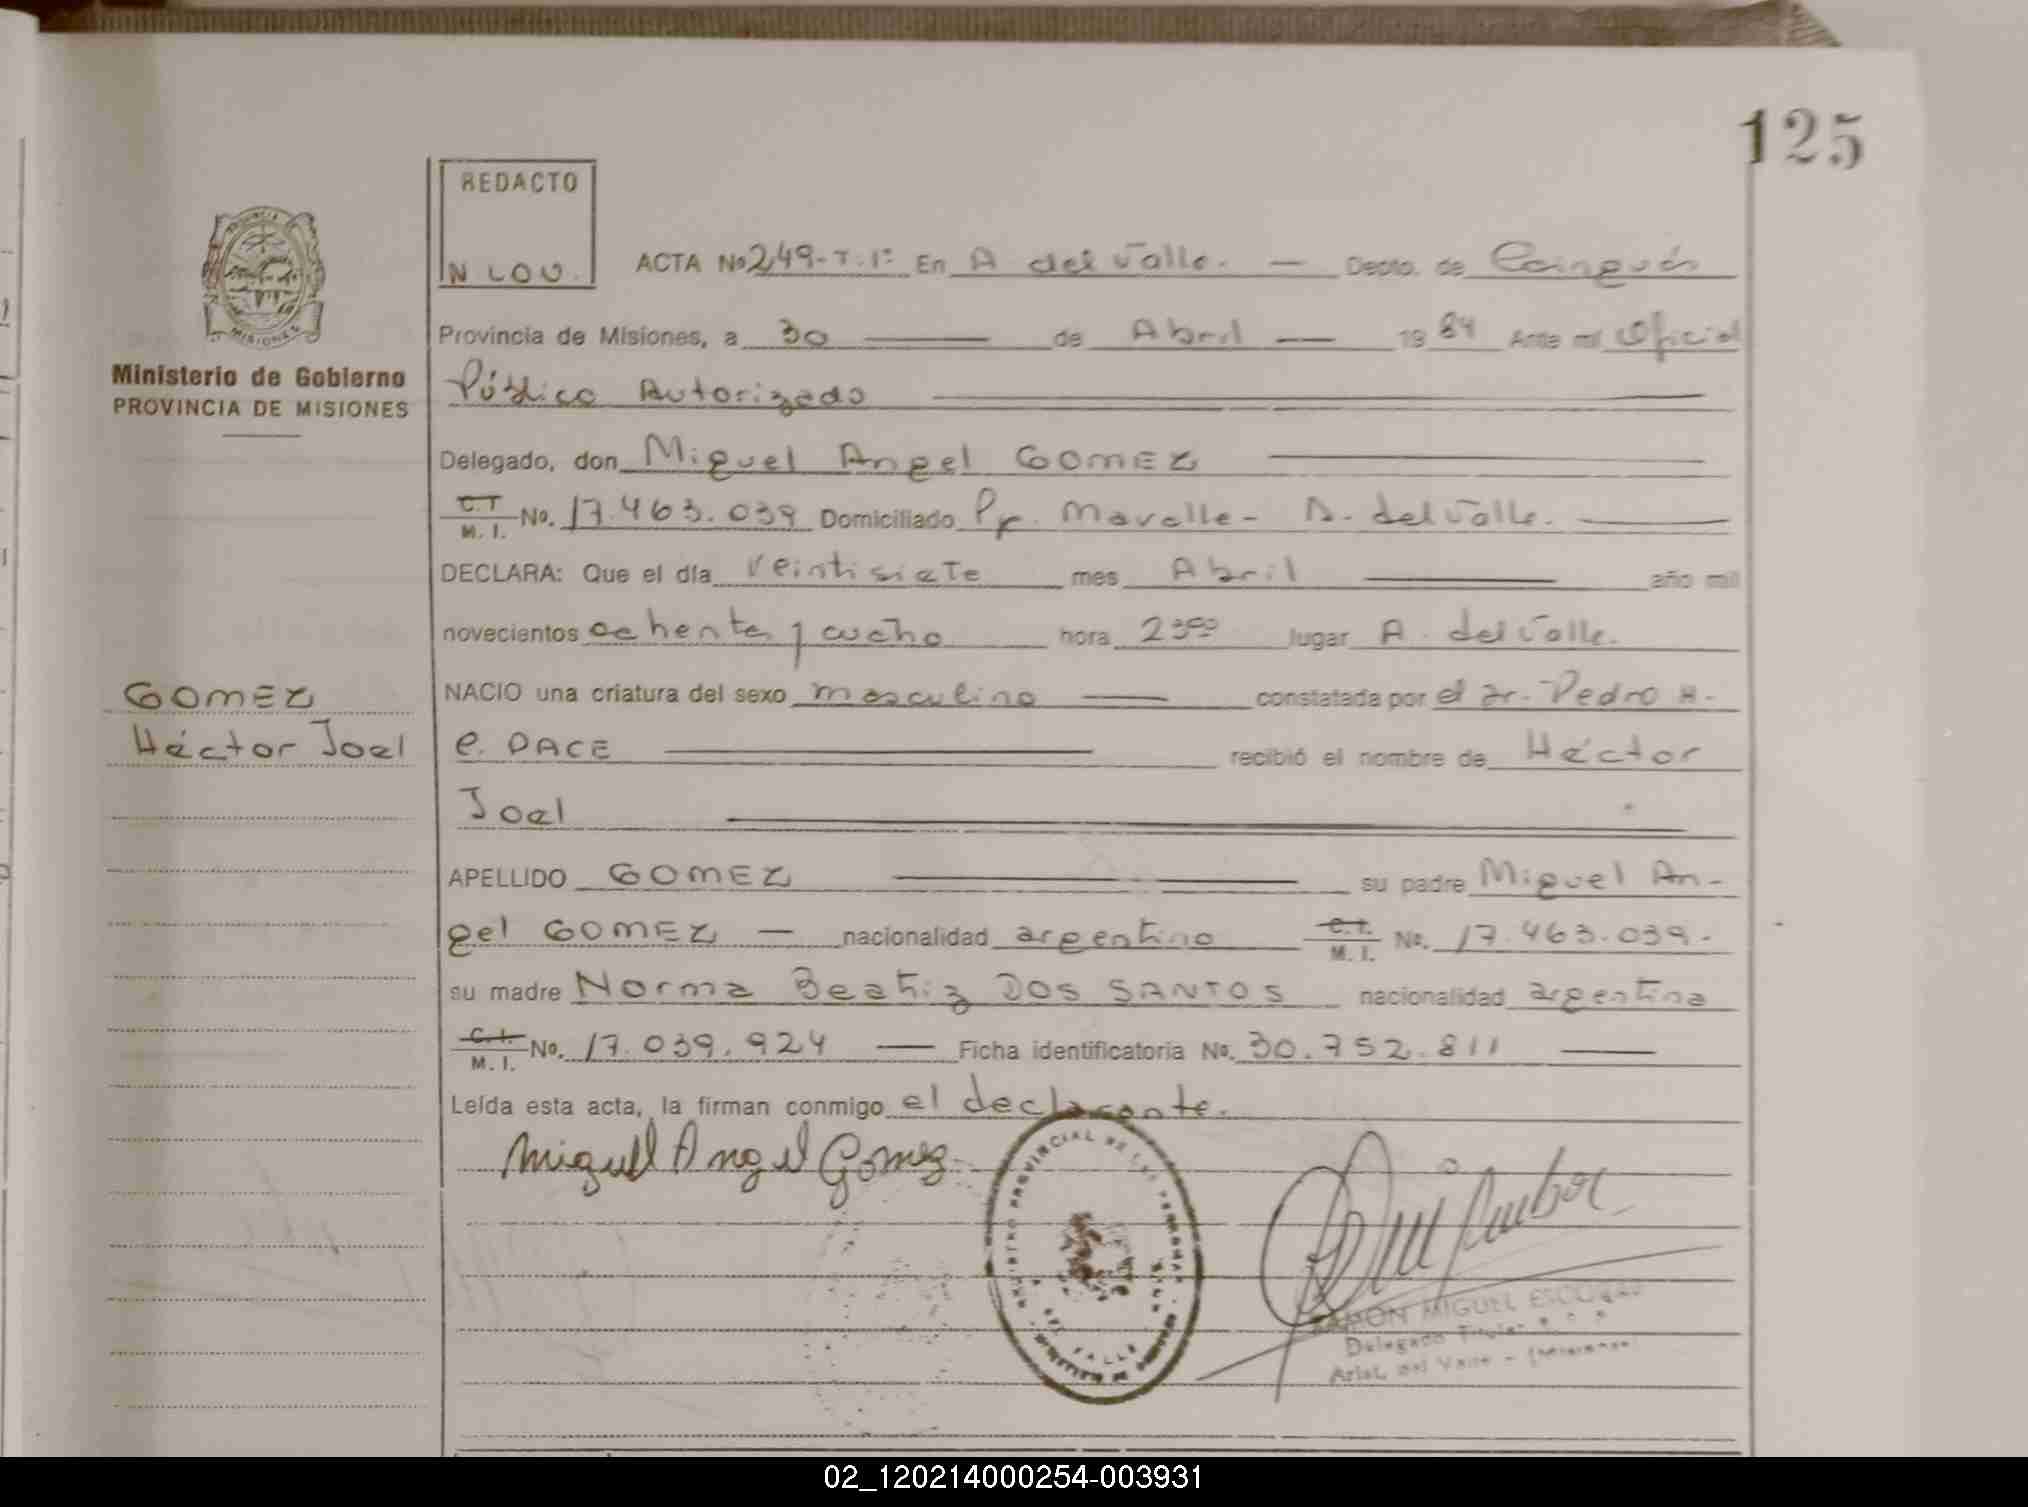 125
REDACTO
N LOU.
ACTA No 249-T.1º En A del Valle. — Depto. de Cainguás
Provincia de Misiones, a 30 — de Abril — 1984 Ante mí Oficial
Público Autorizado
Ministerio de Gobierno
PROVINCIA DE MISIONES
MISIONES
Delegado, don Miguel Angel GOMEZ
C.I. M. I. No. 17.463.039 Domiciliado Pje. Mavalle - A. del Valle.
DECLARA: Que el día veintisiete mes Abril — año mil
novecientos ochenta y cucho hora 23⁰⁰ lugar A. del Valle.
NACIO una criatura del sexo masculino — constatada por el Dr. Pedro H.
GOMEZ
Héctor Joel
C. DACE — recibió el nombre de Héctor
Joel
APELLIDO GOMEZ — su padre Miguel An-
gel GOMEZ — nacionalidad argentino C.I. M. I. No. 17.463.039.
su madre Norma Beatriz DOS SANTOS nacionalidad argentina
C.I. M. I. No. 17.039.924 — Ficha identificatoria No. 30.752.811 —
Leída esta acta, la firman conmigo el declarante.
Miguel Angel Gomez
RAMON MIGUEL ESCOBAR
Delegado Titular
Arist. del Valle -
02_120214000254-003931